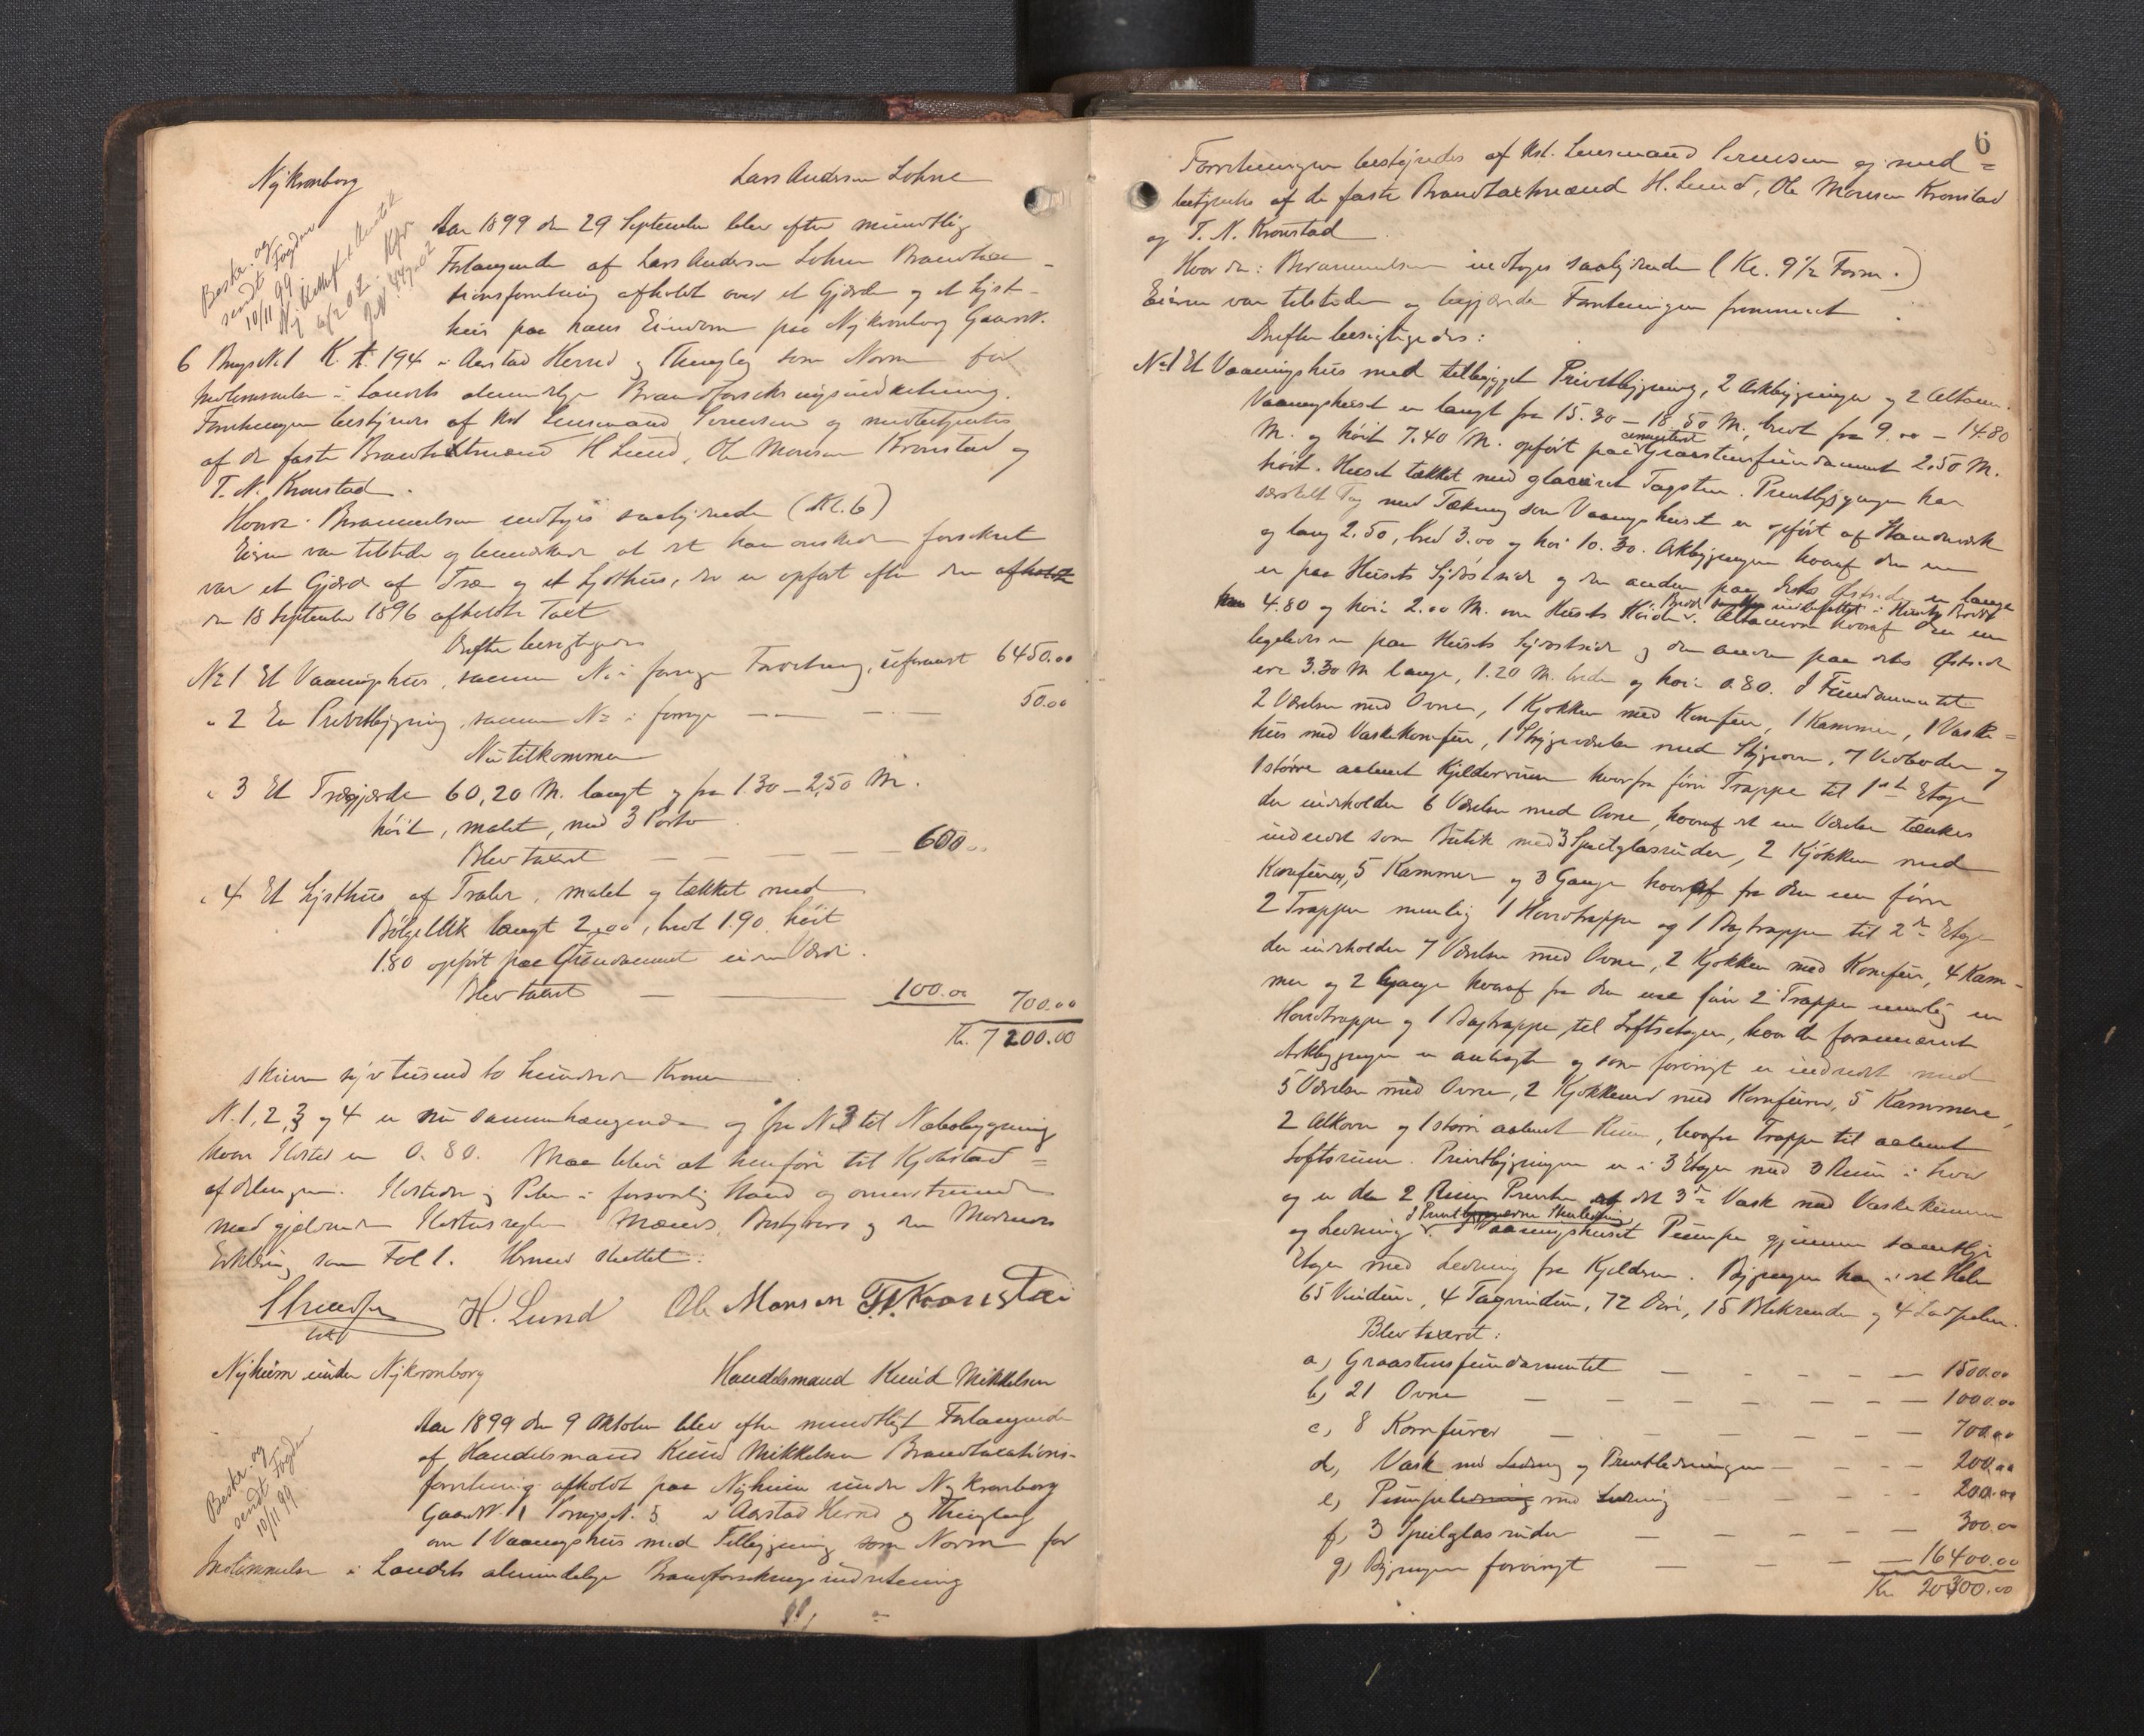 Nykronborg
Lars Andersen Lohne
Beskr. og
sendt Fogden
10/11 99
Aar 1899 den 29 September blev efter mundtlig
Forlangende af Lars Andersen Lohne Brandtaxa-
tionsforretning afholdt over et Gjærde og et Lyst-
huus paa hans Eiendom paa Nykronborg Gaards N.
6 Brugs N. 1 K. k. 194 i Aarstad Herred og Thinglag som Norm for
Indlemmelse i Landets almindelige Brandforsikringsindretning.
Forretningen bestyres af Kst. Lensmand Svendsen og medbetjentes
af de faste Brandtaxtmænd H Lund, Ole Monsen Kronstad og
T. N. Kronstad.
Hvorda: Berammelsen indtoges saalydende (Kl. 6)
Eieren var tilstede og bemærkede at det han ønskede forsikret
var et Gjærde af Træ og et Lysthuus, der er opført efter den afholdte
den 18 September 1896 afholdte Taxt
Derefter besigtigedes
No 1 Et Vaaningshuus, samme No i forrige Forretning, uforandret 6450.00
" 2 En Privetbygning, samme No i forrige — — — 50.00
Nu tilkommer
" 3 Et Trægjærde 60,20 M. langt og fra 1.30 – 2,50 M.
høit, malet, med 3 Porter
Blev taxeret — — — — 600.00
" 4 Et Lysthuus af Træler, malet og tækket med
Bølgeblik langt 2,00, bredt 1.90, høit
1.80 opført paa Grundmuret uden Værdi.
Blev taxeret — — 100.00 700.00
Kr. 7200.00
skriver syv tusend to hundrede Kroner
N. 1, 2, 3 og 4 er nu sammenhængende og fra No 3 til Nabobygning
hvor Ildsted er 0.80. Maa blive at henføre til Kjøbstad=
afdelingen. Ildsteder og Piber i forsvarlig Stand og overensstemmende
med gjældende Ildstedsregler. Mænds, Bestyrers og den Medundertegnedes
Erklæring som Fol 1. Hermed sluttet.
H. Lund Ole Monsen T. N. Kronstad
Nyheim under Nykronborg
Handelsmand Knud Mikkelsen
Beskr. og
sendt Fogden
10/11 99
Aar 1899 den 9 Oktober blev efter mundtligt Forlangende
af Handelsmand Knud Mikkelsen Brandtaxations-
forretning afholdt paa Nyheim under Nykronborg
Gaards N. 1 Brugs N. 5 i Aarstad Herred og Thinglag
om 1 Vaaningshuus med Tilbygning som Norm for
Indlemmelse i Landets almindelige Brandforsikringsindretning
6
Forretningen bestyredes af Kst. Lensmand Svendsen og med=
betjentes af de faste Brandtaxtmænd H. Lund, Ole Monsen Kronstad
og T. N. Kronstad.
Hvorda: Berammelsen indtoges saalydende (Kl. 9½ Form.)
Eieren var tilstede og begjærede Forretningen fremmet.
Derefter besigtigedes:
No 1 Et Vaaningshuus med tilbygget Privetbygning, 2 Arkbygninger og 2 Altaner.
Vaaningshuset er langt fra 15.30 – 18.50 M., bredt fra 9.00 – 14.80
M. og høit 7.40 M. opført paa cementeret Graastensfundament 2,50 M.
høit. Huset tækket med glaseret Tagsten. Privetbygningen har
særskilt Tag med Tækning som Vaaningshuset er opført af Standværk
og lang 2.50, bred 3.00 og høi 10.30. Arkbygningen hvoraf den ene
er paa Husets Sydøstside og den anden paa dets Østside er lange
4.80 og høie 2.00 M. over Husets Høide. Altanerne hvoraf den ene
ligeledes er paa Husets Sydøstside og den anden paa dets Østside
ere 3.30 M lange, 1.20 M. brede og høie 0.80. I Fundamentet
2 Værelser med Ovne, 1 Kjøkken med Komfur, 1 Kammer, 1 Vaske=
huus med Vaskekomfur, 1 Strygeværelse med Strygeovn, 7 Vedboder og
1 større aabent Kjelderrum hvorfra fører Trappe til 1ste Etage
der indeholder 6 Værelser med Ovne, hvoraf det ene Værelse tænkes
indredet som Butik med 3 Speilglasruder, 2 Kjøkken med
Komfurer, 5 Kammer og 3 Gange hvoraf fra den ene fører
2 Trapper nemlig 1 Hovedtrappe og 1 Bagtrappe til 2den Etage
der indeholder 7 Værelser med Ovne, 2 Kjøkken med Komfur, 4 Kam-
mer og 2 Gange hvoraf fra den ene fører 2 Trapper nemlig en
Hovedtrappe og 1 Bagtrappe til Loftsetagen, hvor de forannævnte
Arkbygninger er anbragte og som forøvrigt er indredet med
5 Værelser med Ovne, 2 Kjøkkener med Komfurer, 5 Kammere,
2 Alkover og 1 større aabent Rum, hvorfra Trappe til aabent
Loftsrum. Privetbygningen er i 3 Etager med 3 Rum i hver
og er de 2 Rum Priveter og det 3die Vask med Vaskekummer
og Ledning. I Vaaningshuset Pumpe gjennem samtlige
Etager med Ledning fra Kjelderen. Bygningen har i det Hele
65 Vinduer, 4 Tagvinduer, 72 Døre, 18 Blikrender og 4 Ladpiber.
Blev taxeret:
a) Graastensfundamentet — — — — 1500.00
b) 21 Ovne — — — — 1000.00
c) 8 Komfurer — — — — 700.00
d) Vask med Ledning og Privetledningen — — — 200.00
e) Pumpeledning med Ledning — — — 200.00
f) 3 Speilglasruder — — — — 300.00
g) Bygningen forøvrigt — — — — 16400.00
Kr. 20300.00